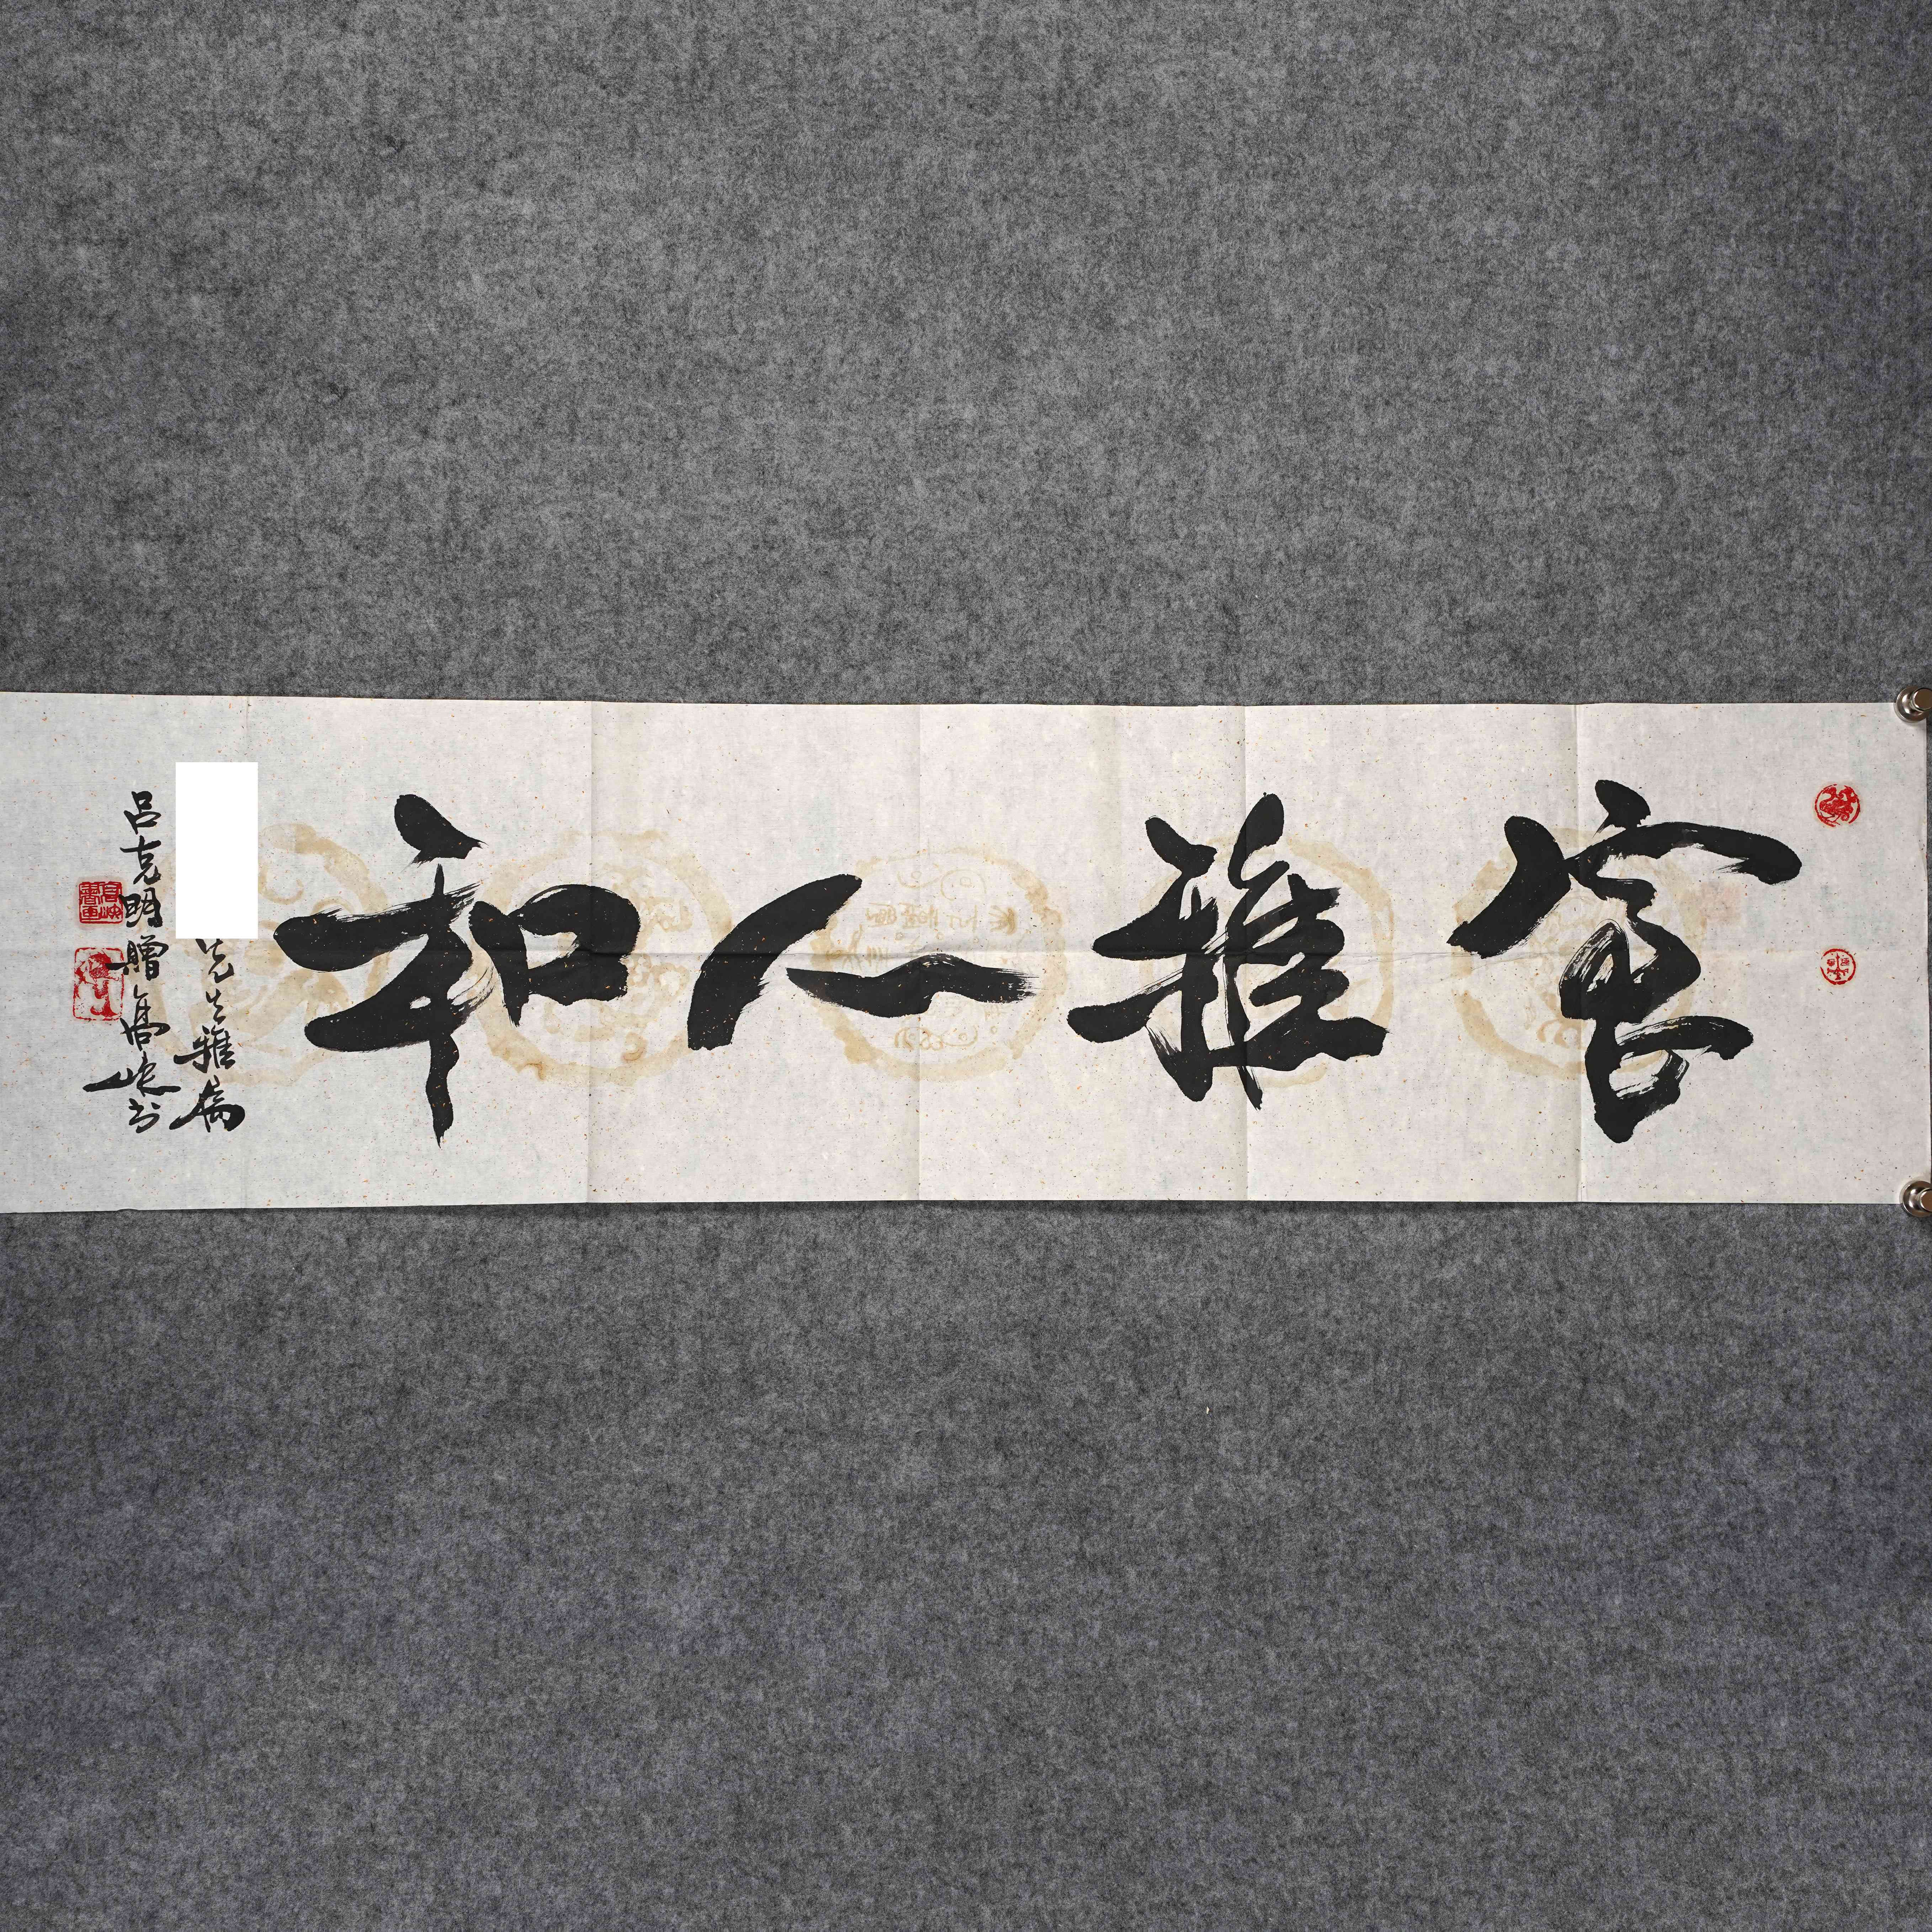 室雅人和
先生雅属
吕克明赠高峡书